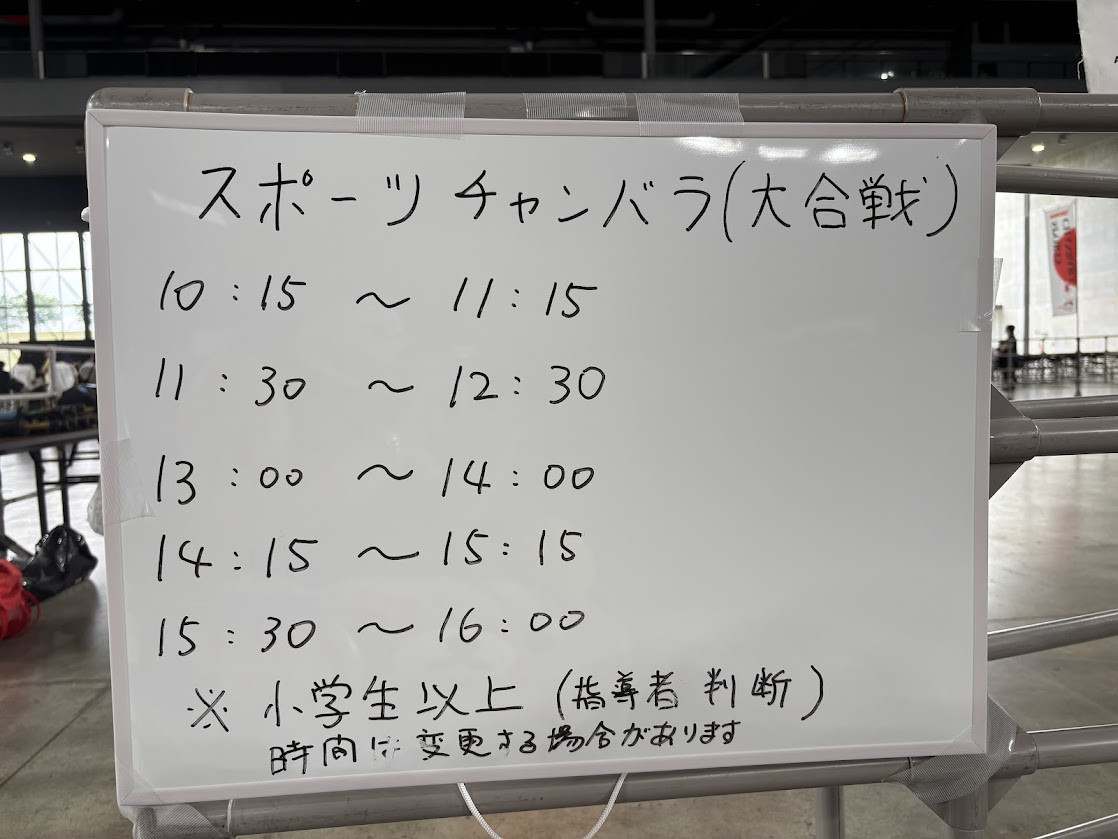 スポーツチャンバラ(大合戦)
10:15 〜 11:15
11:30 〜 12:30
13:00 〜 14:00
14:15 〜 15:15
15:30 〜 16:00
※ 小学生以上 (指導者 判断)
時間は変更する場合があります